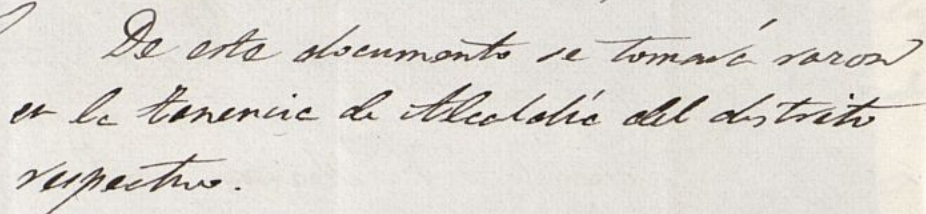 De este documento se tomará razon
en la tenencia de Alcaldía del distrito
respectivo.